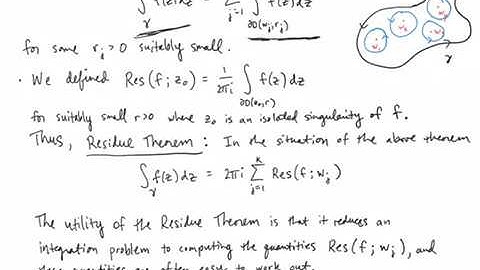 ∫_γ f(z)dz = Σ_{j=1}^{k} ∫_{∂D(w_j,r_j)} f(z)dz
for some r_j > 0 suitably small.
· We defined Res(f; z₀) = 1/2πi ∫_{∂D(z₀,r)} f(z) dz
for suitably small r>0 where z₀ is an isolated singularity of f.
Thus, Residue Theorem : In the situation of the above theorem
∫_γ f(z)dz = 2πi Σ_{j=1}^{k} Res(f; w_j)
The utility of the Residue Theorem is that it reduces an
integration problem to computing the quantities Res(f; w_j), and
these quantities are often easy to work out.
γ